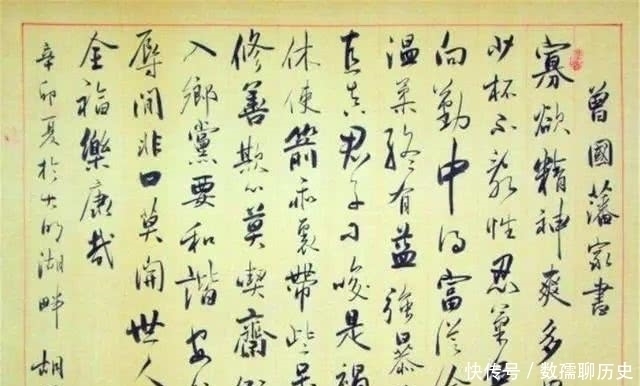 曾國藩家書
寡欲精神爽多
少杯不亂性忍氣
向勤中得富從
温柔終有益強暴
真君子刁唆是禍
休使箭乖裏帶些呆
修善欺心莫喫齋衙
入鄉黨要和諧安
辱閒非口莫開世人
全福樂康哉
辛卯夏於大明湖畔 胡
快传号 / 数孺聊历史